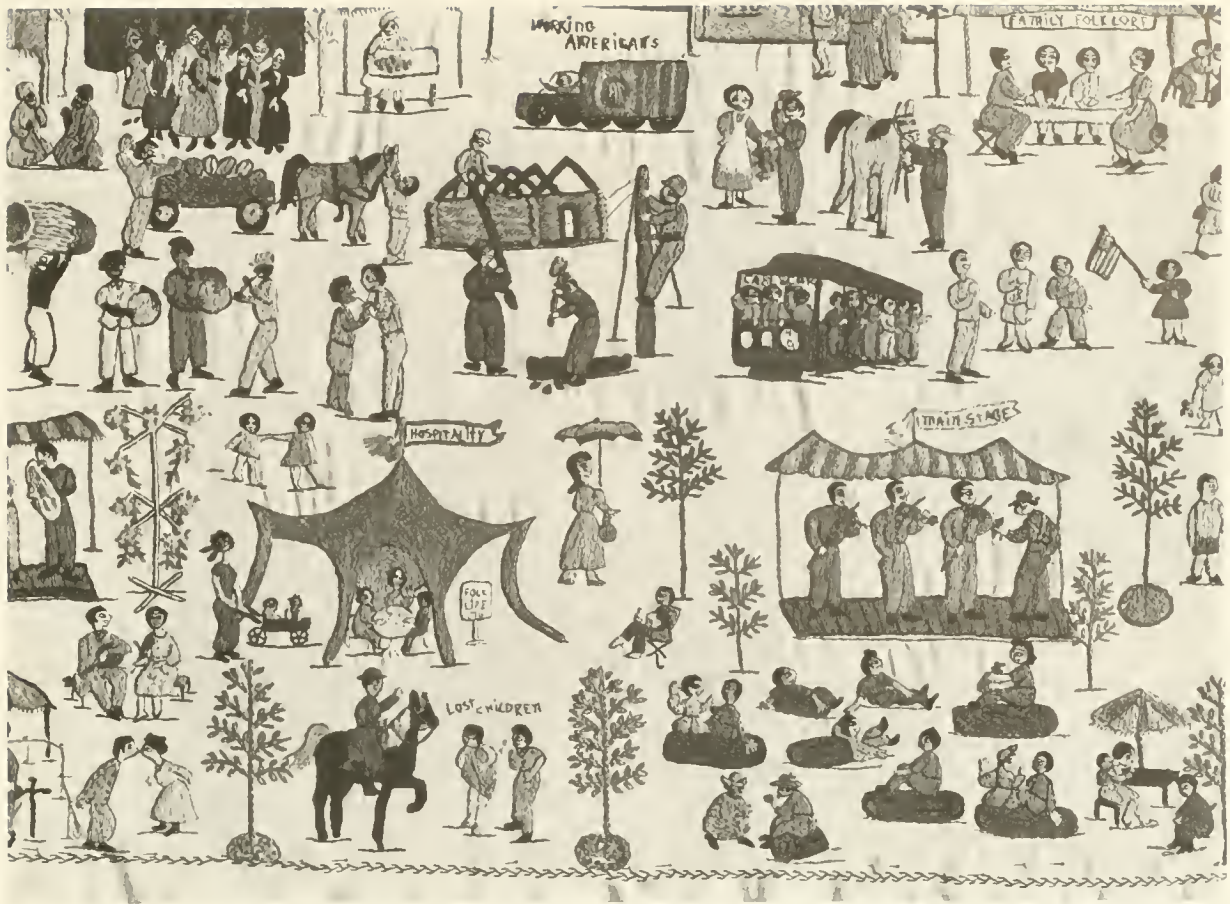 WORKING
AMERICANS
FAMILY FOLKLORE
HOSPITALITY
MAIN STAGE
FOLK
LIFE
LOST CHILDREN